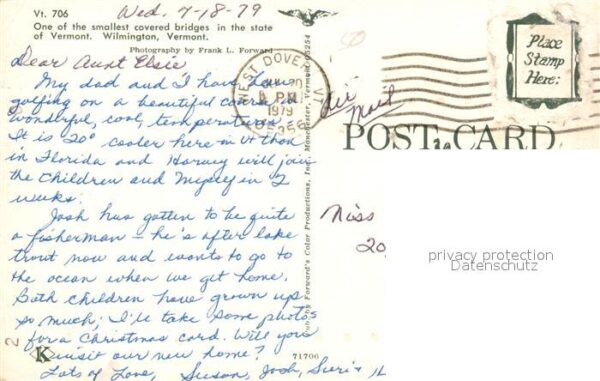 Vt. 706
Wed. 7-18-79
One of the smallest covered bridges in the state
of Vermont. Wilmington, Vermont.
Photography by Frank L. Forward
Dear Aunt Elsie
My dad and I have been
golfing on a beautiful course in
wonderful, cool, temperatures.
It is 20° cooler here in Vt than
in Florida and Harvey will join
the children and myself in 2
weeks.
Josh has gotten to be quite
a fisherman – he's after lake
trout now and wants to go to
the ocean when we get home.
Both children have grown up
so much; I'll take some photos
for a Christmas card. Will you
visit our new home?
Lots of Love, Susan, Josh,
K
2
71706
WEST DOVER VT
PM
1979
05356
by Forward's Color Productions, Inc., Manchester, Vermont 05254
Air Mail
Place
Stamp
Here:
POST CARD
Miss
20
privacy protection
Datenschutz